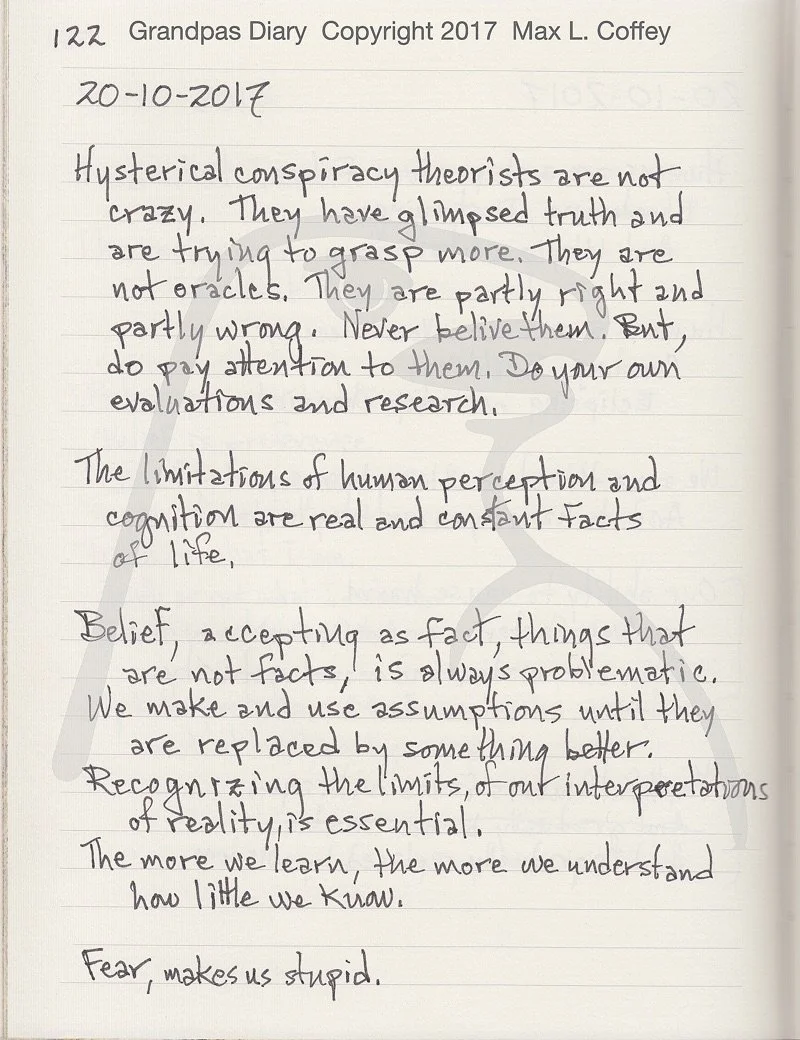 122 Grandpas Diary Copyright 2017 Max L. Coffey
20-10-2017
Hysterical conspiracy theorists are not
crazy. They have glimpsed truth and
are trying to grasp more. They are
not oracles. They are partly right and
partly wrong. Never belive them. But,
do pay attention to them. Do your own
evaluations and research.
The limitations of human perception and
cognition are real and constant facts
of life.
Belief, accepting as fact, things that
are not facts, is always problematic.
We make and use assumptions until they
are replaced by something better.
Recognizing the limits, of our interpretations
of reality, is essential.
The more we learn, the more we understand
how little we know.
Fear, makes us stupid.